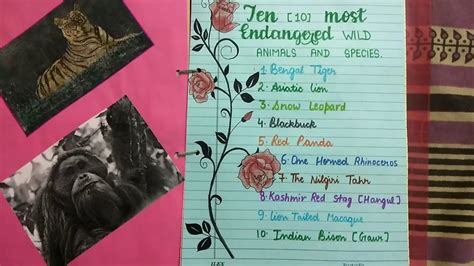 Ten [10] most
Endangered WILD
ANIMALS AND SPECIES.
1. Bengal Tiger
2. Asiatic lion
3. Snow Leopard
4. Blackbuck
5. Red Panda
6. One Horned Rhinoceros
7. The Nilgiri Tahr
8. Kashmir Red Stag [Hangul]
9. Lion Tailed Macaque
10. Indian Bison [Gaur]